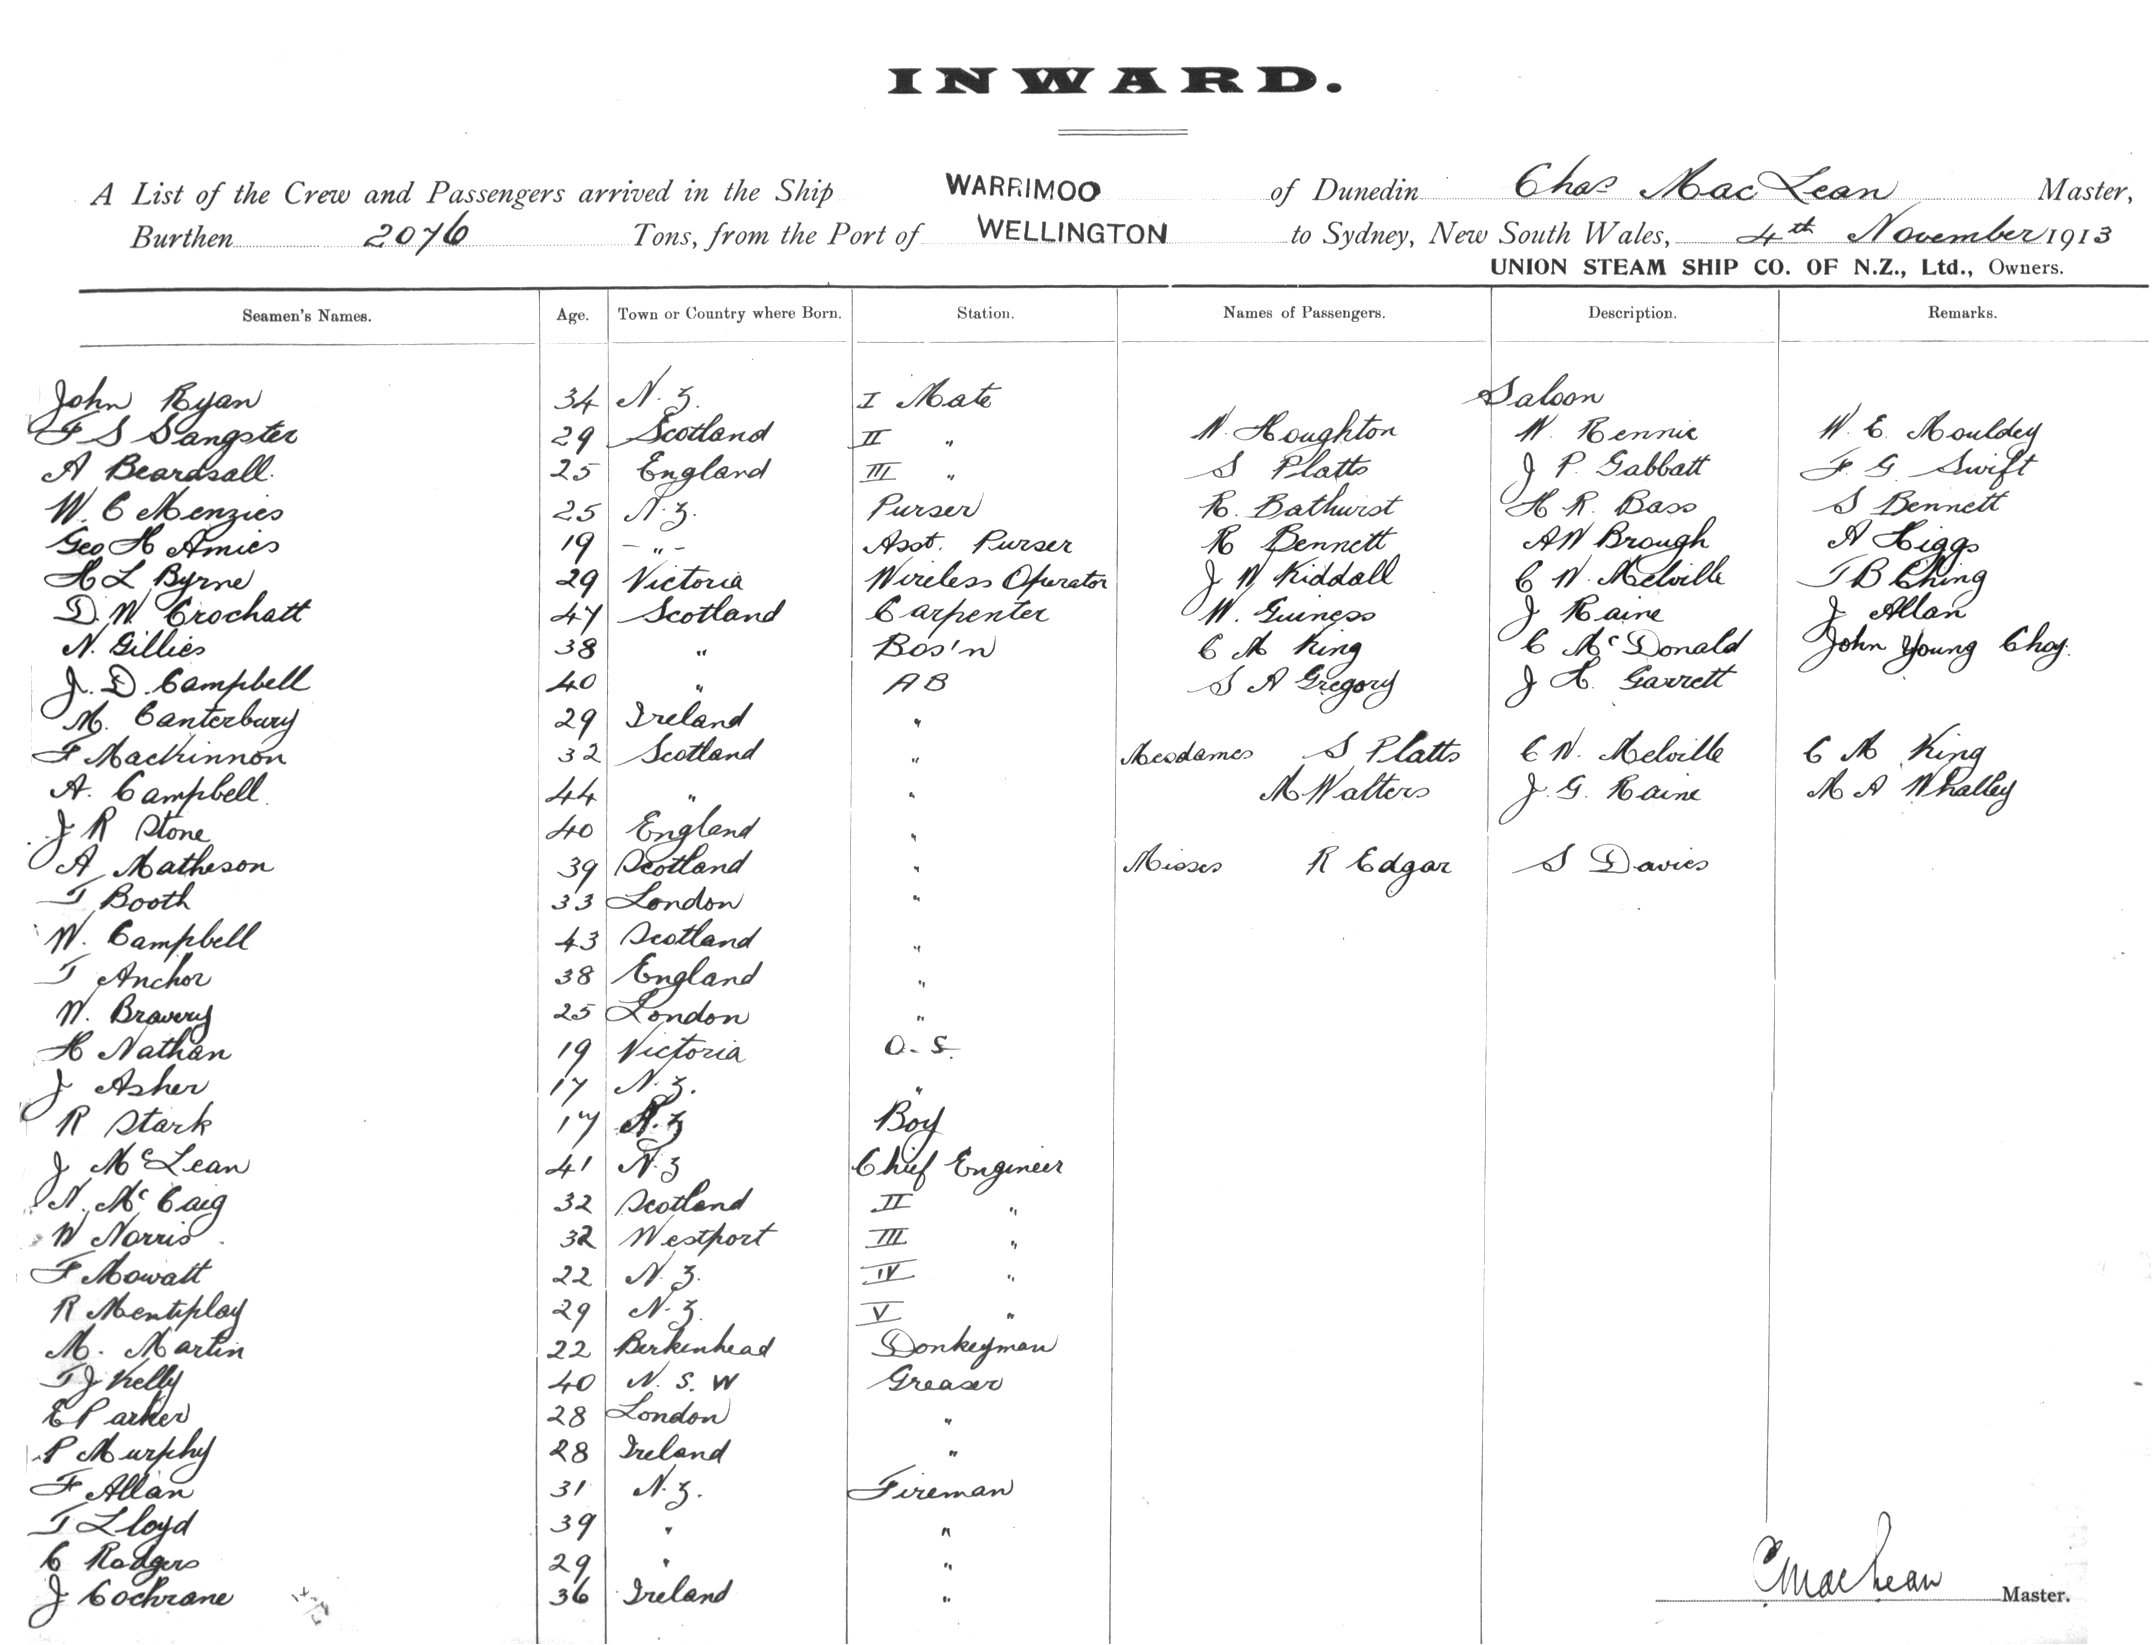 INWARD.
A List of the Crew and Passengers arrived in the Ship WARRIMOO of Dunedin Chas MacLean Master,
Burthen 2076 Tons, from the Port of WELLINGTON to Sydney, New South Wales, 4th November 1913
UNION STEAM SHIP CO. OF N.Z., Ltd., Owners.
Seamen's Names. Age. Town or Country where Born. Station. Names of Passengers. Description. Remarks.
John Ryan 34 N.Z. I Mate Saloon
F S Sangster 29 Scotland II " W. Houghton W. Rennie W. E. Mouldey
A Beardsall 25 England III " S Platts J P. Gabbatt F. G. Swift
W. C Menzies 25 N.Z. Purser R. Bathurst H R. Bass S Bennett
Geo H Amies 19 -"- Asst. Purser R Bennett A W Brough A Higgs
H L Byrne 29 Victoria Wireless Operator J W Kiddall C W. Melville T B Ching
D. W. Crochatt 47 Scotland Carpenter W. Guiness J Raine J Allan
N. Gillies 38 " Bos'n C M King C McDonald John Young Choy.
J. D. Campbell 40 " A B S A Gregory J H. Garrett
M. Canterbury 29 Ireland "
F MacKinnon 32 Scotland " Mesdames S Platts C W. Melville C M King
A. Campbell 44 " " M Walters J. G. Raine M A Whalley
J R Stone 40 England "
A Matheson 39 Scotland " Misses R Edgar S Davies
T Booth 33 London "
W. Campbell 43 Scotland "
T Anchor 38 England "
W. Bravery 25 London "
H Nathan 19 Victoria O. S.
J Asher 17 N.Z. "
R Stark 17 N.Z Boy
J McLean 41 N.Z Chief Engineer
N. McCaig 32 Scotland II "
W Norris 32 Westport III "
F Mowatt 22 N.Z. IV "
R Mentiplay 29 N.Z. V "
M. Martin 22 Birkenhead Donkeyman
T J Kelly 40 N. S. W Greaser
E Parker 28 London "
P Murphy 28 Ireland "
F Allan 31 N.Z. Fireman
T Lloyd 39 " "
C Rodgers 29 " "
J Cochrane 36 Ireland "
C MacLean Master.